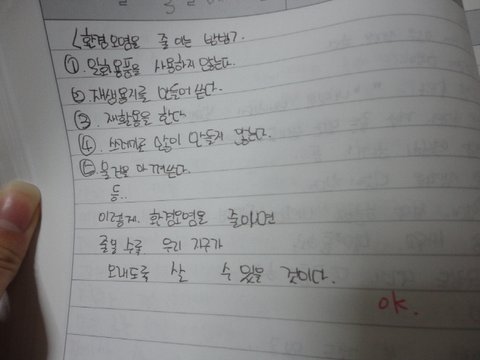 <환경오염을 줄이는 방법>
①. 일회용품을 사용하지 않는다.
② 재생용지를 만들어 쓴다.
③. 재활용을 한다
④. 쓰레기를 많이 만들지 않는다.
⑤ 물건을 아껴쓴다.
등..
이렇게. 환경오염을 줄이면
줄일 수록 우리 지구가
오래도록 살 수 있을 것이다.
ok.